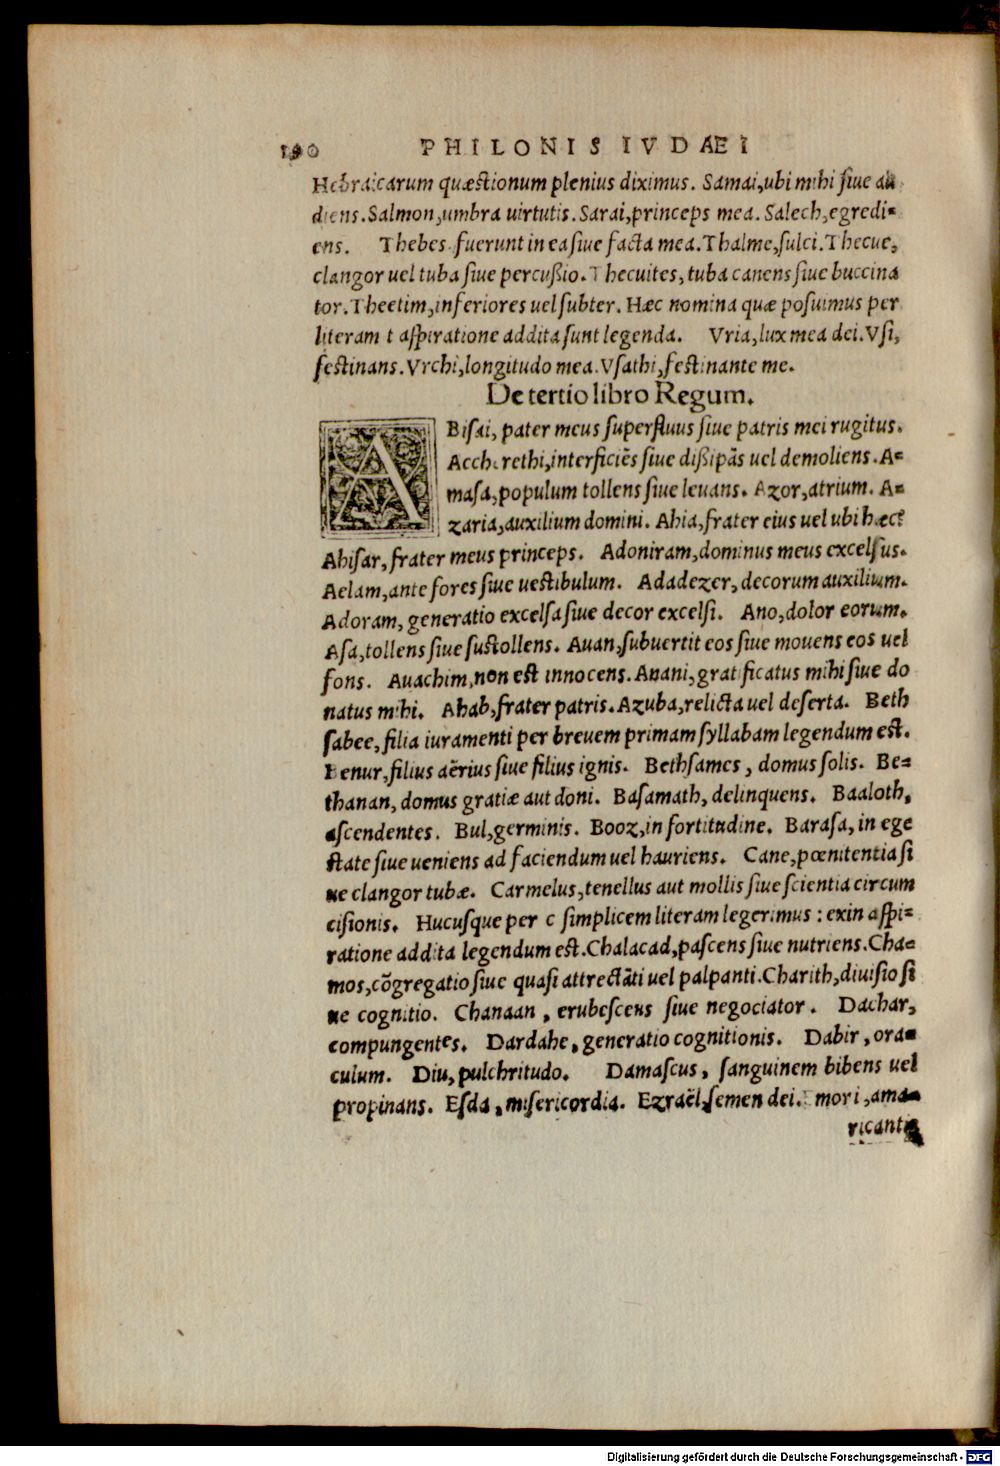 190 PHILONIS IVDAEI
Hebraicarum quæstionum plenius diximus. Samai,ubi mihi siue au
diens.Salmon,umbra uirtutis.Sarai,princeps mea. Salech,egredi=
ens. Thebes fuerunt in ea siue facta mea.Thalme,sulci.Thecue,
clangor uel tuba siue percußio.Thecuites,tuba canens siue buccina
tor.Theetim,inferiores uel subter. Hæc nomina quæ posuimus per
literam t aspiratione addita sunt legenda. Vria,lux mea dei.Vsi,
festinans.Vrchi,longitudo mea.Vsathi,festinante me.
De tertio libro Regum.
ABisai, pater meus superfluus siue patris mei rugitus.
Accherethi,interficiẽs siue dißipãs uel demoliens.A=
masa,populum tollens siue leuans. Azor,atrium. A=
zaria,auxilium domini. Ahia,frater eius uel ubi hæc?
Ahisar,frater meus princeps. Adoniram,dominus meus excelsus.
Aelam,ante fores siue uestibulum. Adadezer,decorum auxilium.
Adoram,generatio excelsa siue decor excelsi. Ano,dolor eorum.
Asa,tollens siue sustollens. Auan,subuertit eos siue mouens eos uel
fons. Auachim,non est innocens.Anani,gratificatus mihi siue do
natus mihi. Ahab,frater patris.Azuba,relicta uel deserta. Beth
sabee,filia iuramenti per breuem primam syllabam legendum est.
Benur,filius aërius siue filius ignis. Bethsames, domus solis. Be=
thanan, domus gratiæ aut doni. Basamath, delinquens. Baaloth,
ascendentes. Bul,germinis. Booz,in fortitudine. Barasa,in ege
state siue ueniens ad faciendum uel hauriens. Cane,pœnitentia si
ue clangor tubæ. Carmelus,tenellus aut mollis siue scientia circum
cisionis. Hucusque per c simplicem literam legerimus : exin aspi=
ratione addita legendum est.Chalacad,pascens siue nutriens.Cha=
mos,cõgregatio siue quasi attrectãti uel palpanti.Charith,diuisio si
ue cognitio. Chanaan, erubescens siue negociator. Dachar,
compungentes. Dardahe, generatio cognitionis. Dabir, ora=
culum. Diu,pulchritudo. Damascus, sanguinem bibens uel
propinans. Esda,misericordia. Ezraël,semen dei. Emori,ama=
ricantis
Digitalisierung gefördert durch die Deutsche Forschungsgemeinschaft - DFG